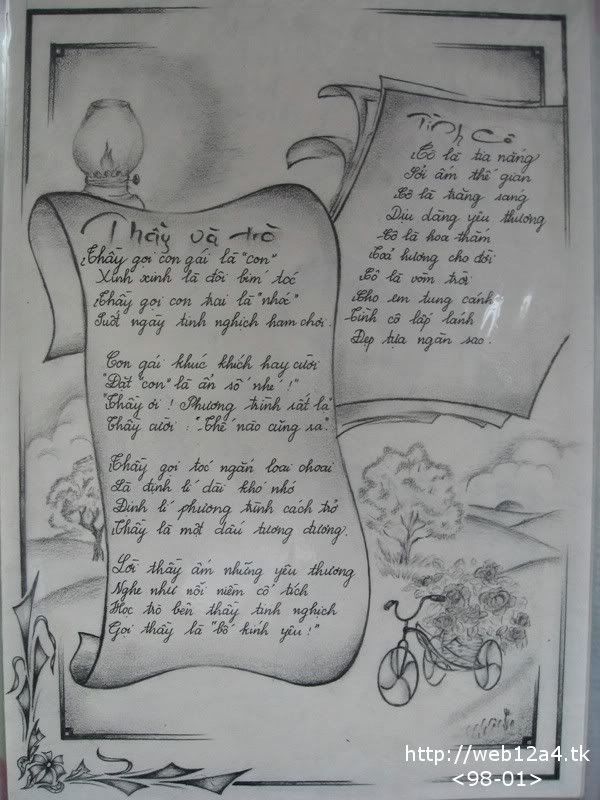 Thầy và trò
Thầy gọi con gái là "con"
Xinh xinh là đôi bím tóc
Thầy gọi con trai là "nhóc"
Suốt ngày tinh nghịch ham chơi.
Con gái khúc khích hay cười
"Đặt "con" là ẩn số nhé!"
"Thầy ơi! Phương trình rất lạ"
Thầy cười: "Thế nào cũng ra".
Thầy gọi tóc ngắn loai choai
Là định lí dài khó nhớ
Định lí phương trình cách trở
Thầy là một dấu tương đương.
Lời thầy ấm những yêu thương
Nghe như nỗi niềm cổ tích
Học trò bên thầy tinh nghịch
Gọi thầy là "bố kính yêu!"
Tình Cô
Cô là tia nắng
Sởi ấm thế gian
Cô là trăng sáng
Dịu dàng yêu thương
Cô là hoa thắm
Toả hương cho đời
Cô là vòm trời
Cho em tung cánh
Tình cô lấp lánh
Đẹp tựa ngàn sao.
http://web12a4.tk
<98-01>